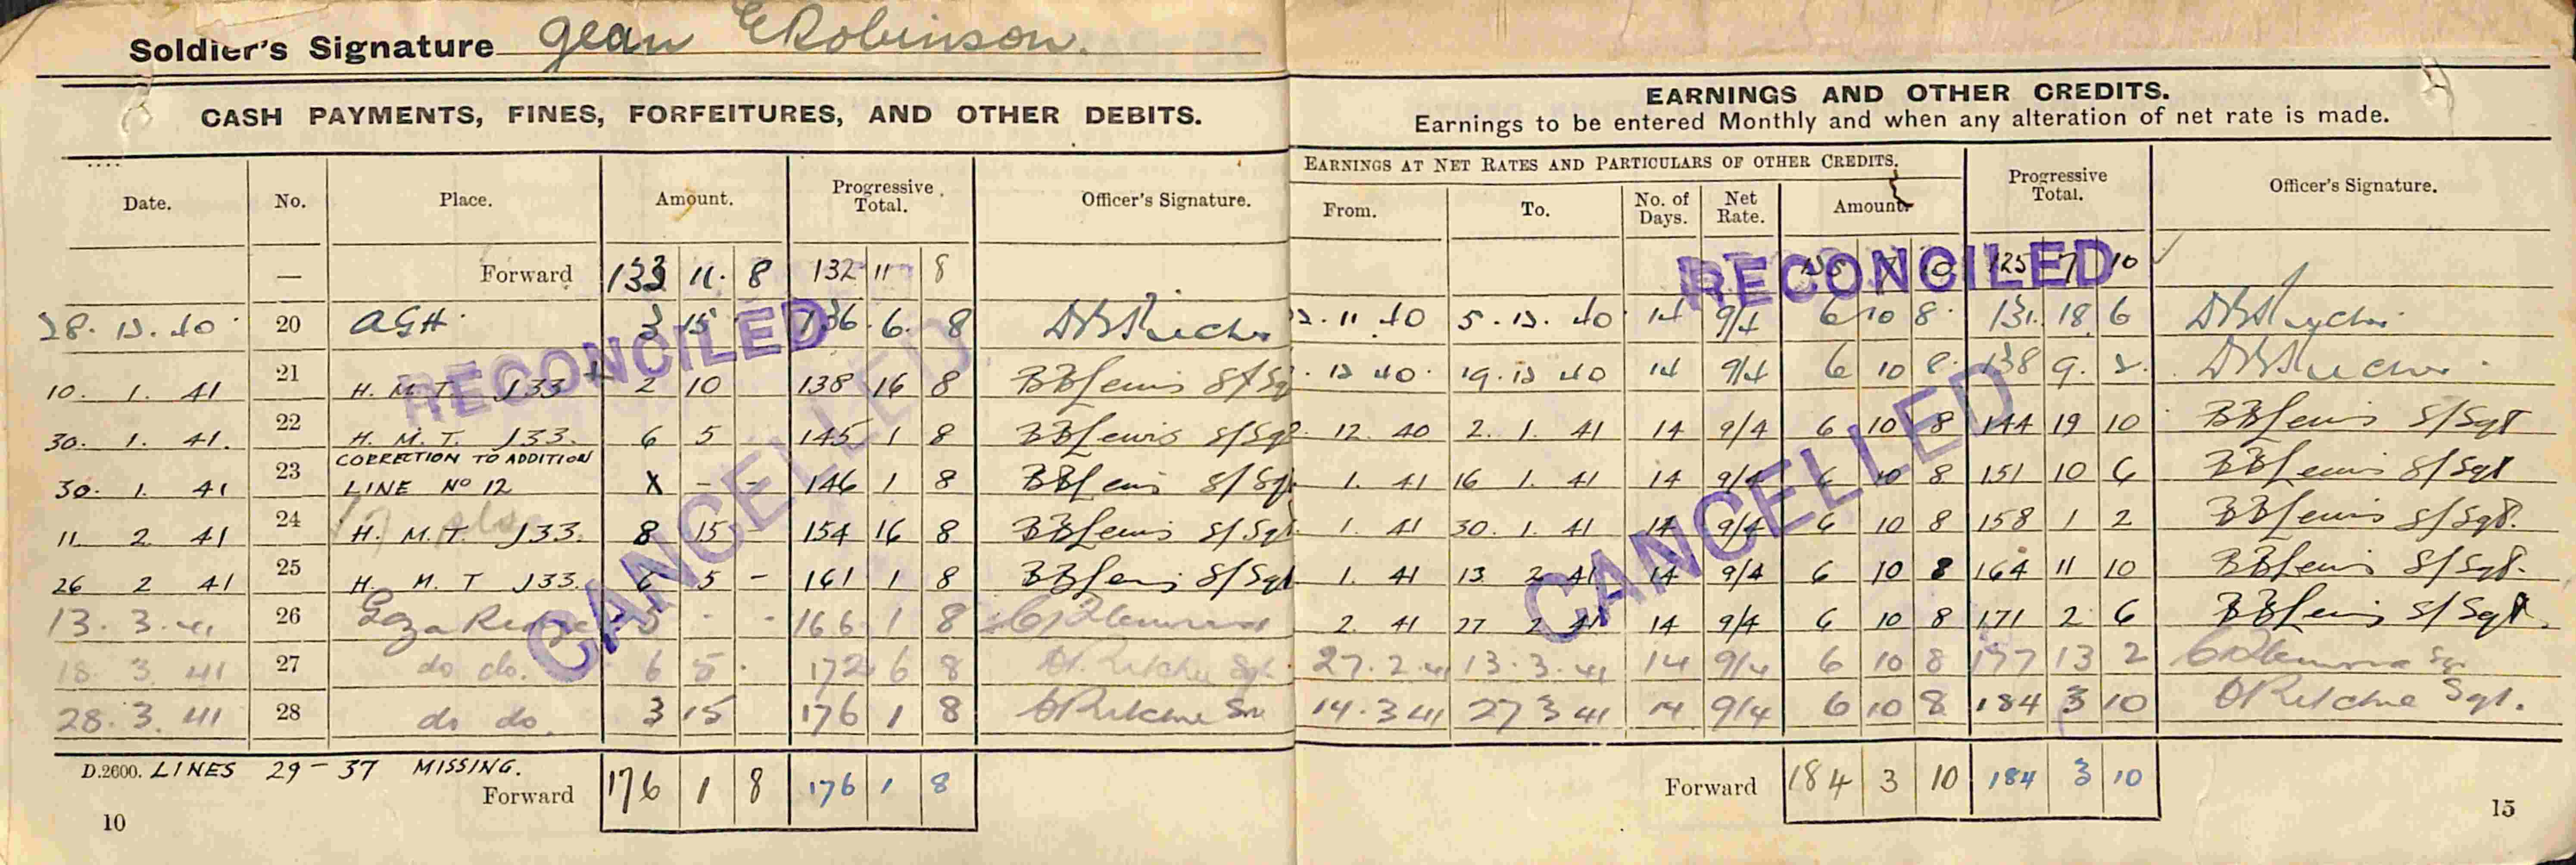 Soldier's Signature Jean E Robinson.
CASH PAYMENTS, FINES, FORFEITURES, AND OTHER DEBITS.
Date. No. Place. Amount. Progressive Total. Officer's Signature.
— Forward 133 11. 8 132 11 8
28. 12. 40 20 AGH. 3 15 136. 6. 8
10. 1. 41 21 H. M. T. J33 2 10 138 16 8 BBLewis S/Sgt
30. 1. 41. 22 H. M. T. J33. 6 5 145 1 8 BBLewis S/Sgt
CORRECTION TO ADDITION
30. 1. 41 23 LINE No 12 X - - 146 1 8 BBLewis S/Sgt
11 2 41 24 H. M. T. J33. 8 15 - 154 16 8 BBLewis S/Sgt
26 2 41 25 H. M. T J33. 6 5 - 161 1 8 BBLewis S/Sgt
13. 3. 41 26 Gaza 5 - - 166 1 8
18 3 41 27 do do. 6 5 - 172 6 8 Ritchie Sgt.
28. 3. 41 28 do do. 3 15 176 1 8 Ritchie
D.2600. LINES 29 - 37 MISSING.
Forward 176 1 8 176 1 8
10
RECONCILED
CANCELLED
EARNINGS AND OTHER CREDITS.
Earnings to be entered Monthly and when any alteration of net rate is made.
EARNINGS AT NET RATES AND PARTICULARS OF OTHER CREDITS.
From. To. No. of Days. Net Rate. Amount. Progressive Total. Officer's Signature.
125 7 10 125 7 10
11 40 5. 12. 40 14 9/4 6 10 8 131. 18 6
12 40 19. 12 40 14 9/4 6 10 8 138 9. 2.
12. 40 2. 1. 41 14 9/4 6 10 8 144 19 10 BBLewis S/Sgt
1. 41 16 1. 41 14 9/4 6 10 8 151 10 6 BBLewis S/Sgt
1. 41 30. 1. 41 14 9/4 6 10 8 158 1 2 BBLewis S/Sgt.
1. 41 13 2 41 14 9/4 6 10 8 164 11 10 BBLewis S/Sgt.
2. 41 27 2 41 14 9/4 6 10 8 171 2 6 BBLewis S/Sgt.
27. 2. 41 13. 3. 41 14 9/4 6 10 8 177 13 2
14. 3 41 27 3 41 14 9/4 6 10 8 184 3 10 Ritchie Sgt.
Forward 184 3 10 184 3 10
15
RECONCILED
CANCELLED